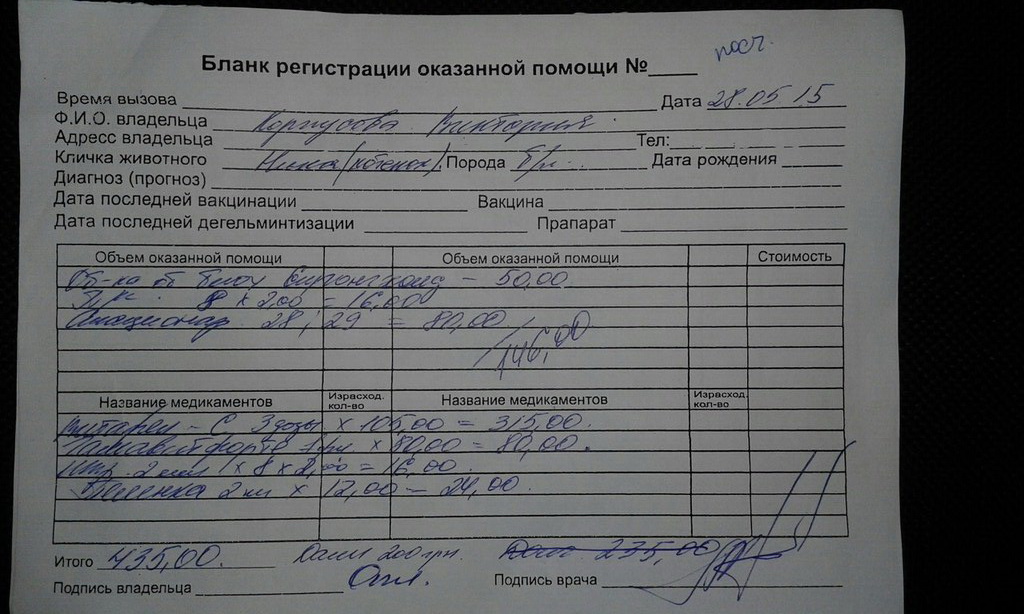 посч.
Бланк регистрации оказанной помощи №
Время вызова Дата 28.05 15
Ф.И.О. владельца Корпусова Виктория
Адресс владельца Тел:
Кличка животного Ника (котенок) Порода б/п Дата рождения
Диагноз (прогноз)
Дата последней вакцинации Вакцина
Дата последней дегельминтизации Прапарат
Объем оказанной помощи Объем оказанной помощи Стоимость
Об-ка от блох - 50,00
8 х 2,00 = 16,00
Стационар 28, 29 = 80,00
146,00
Название медикаментов Израсход. кол-во Название медикаментов Израсход. кол-во
- С 3 дозы х 105,00 = 315,00.
форте 1 х 80,00 = 80,00.
2 1 х 8 х 2,00 = 16,00.
Пеленка 2 х 12,00 = 24,00.
Итого 435,00. 200 грн. 235,00
Подпись владельца Подпись врача